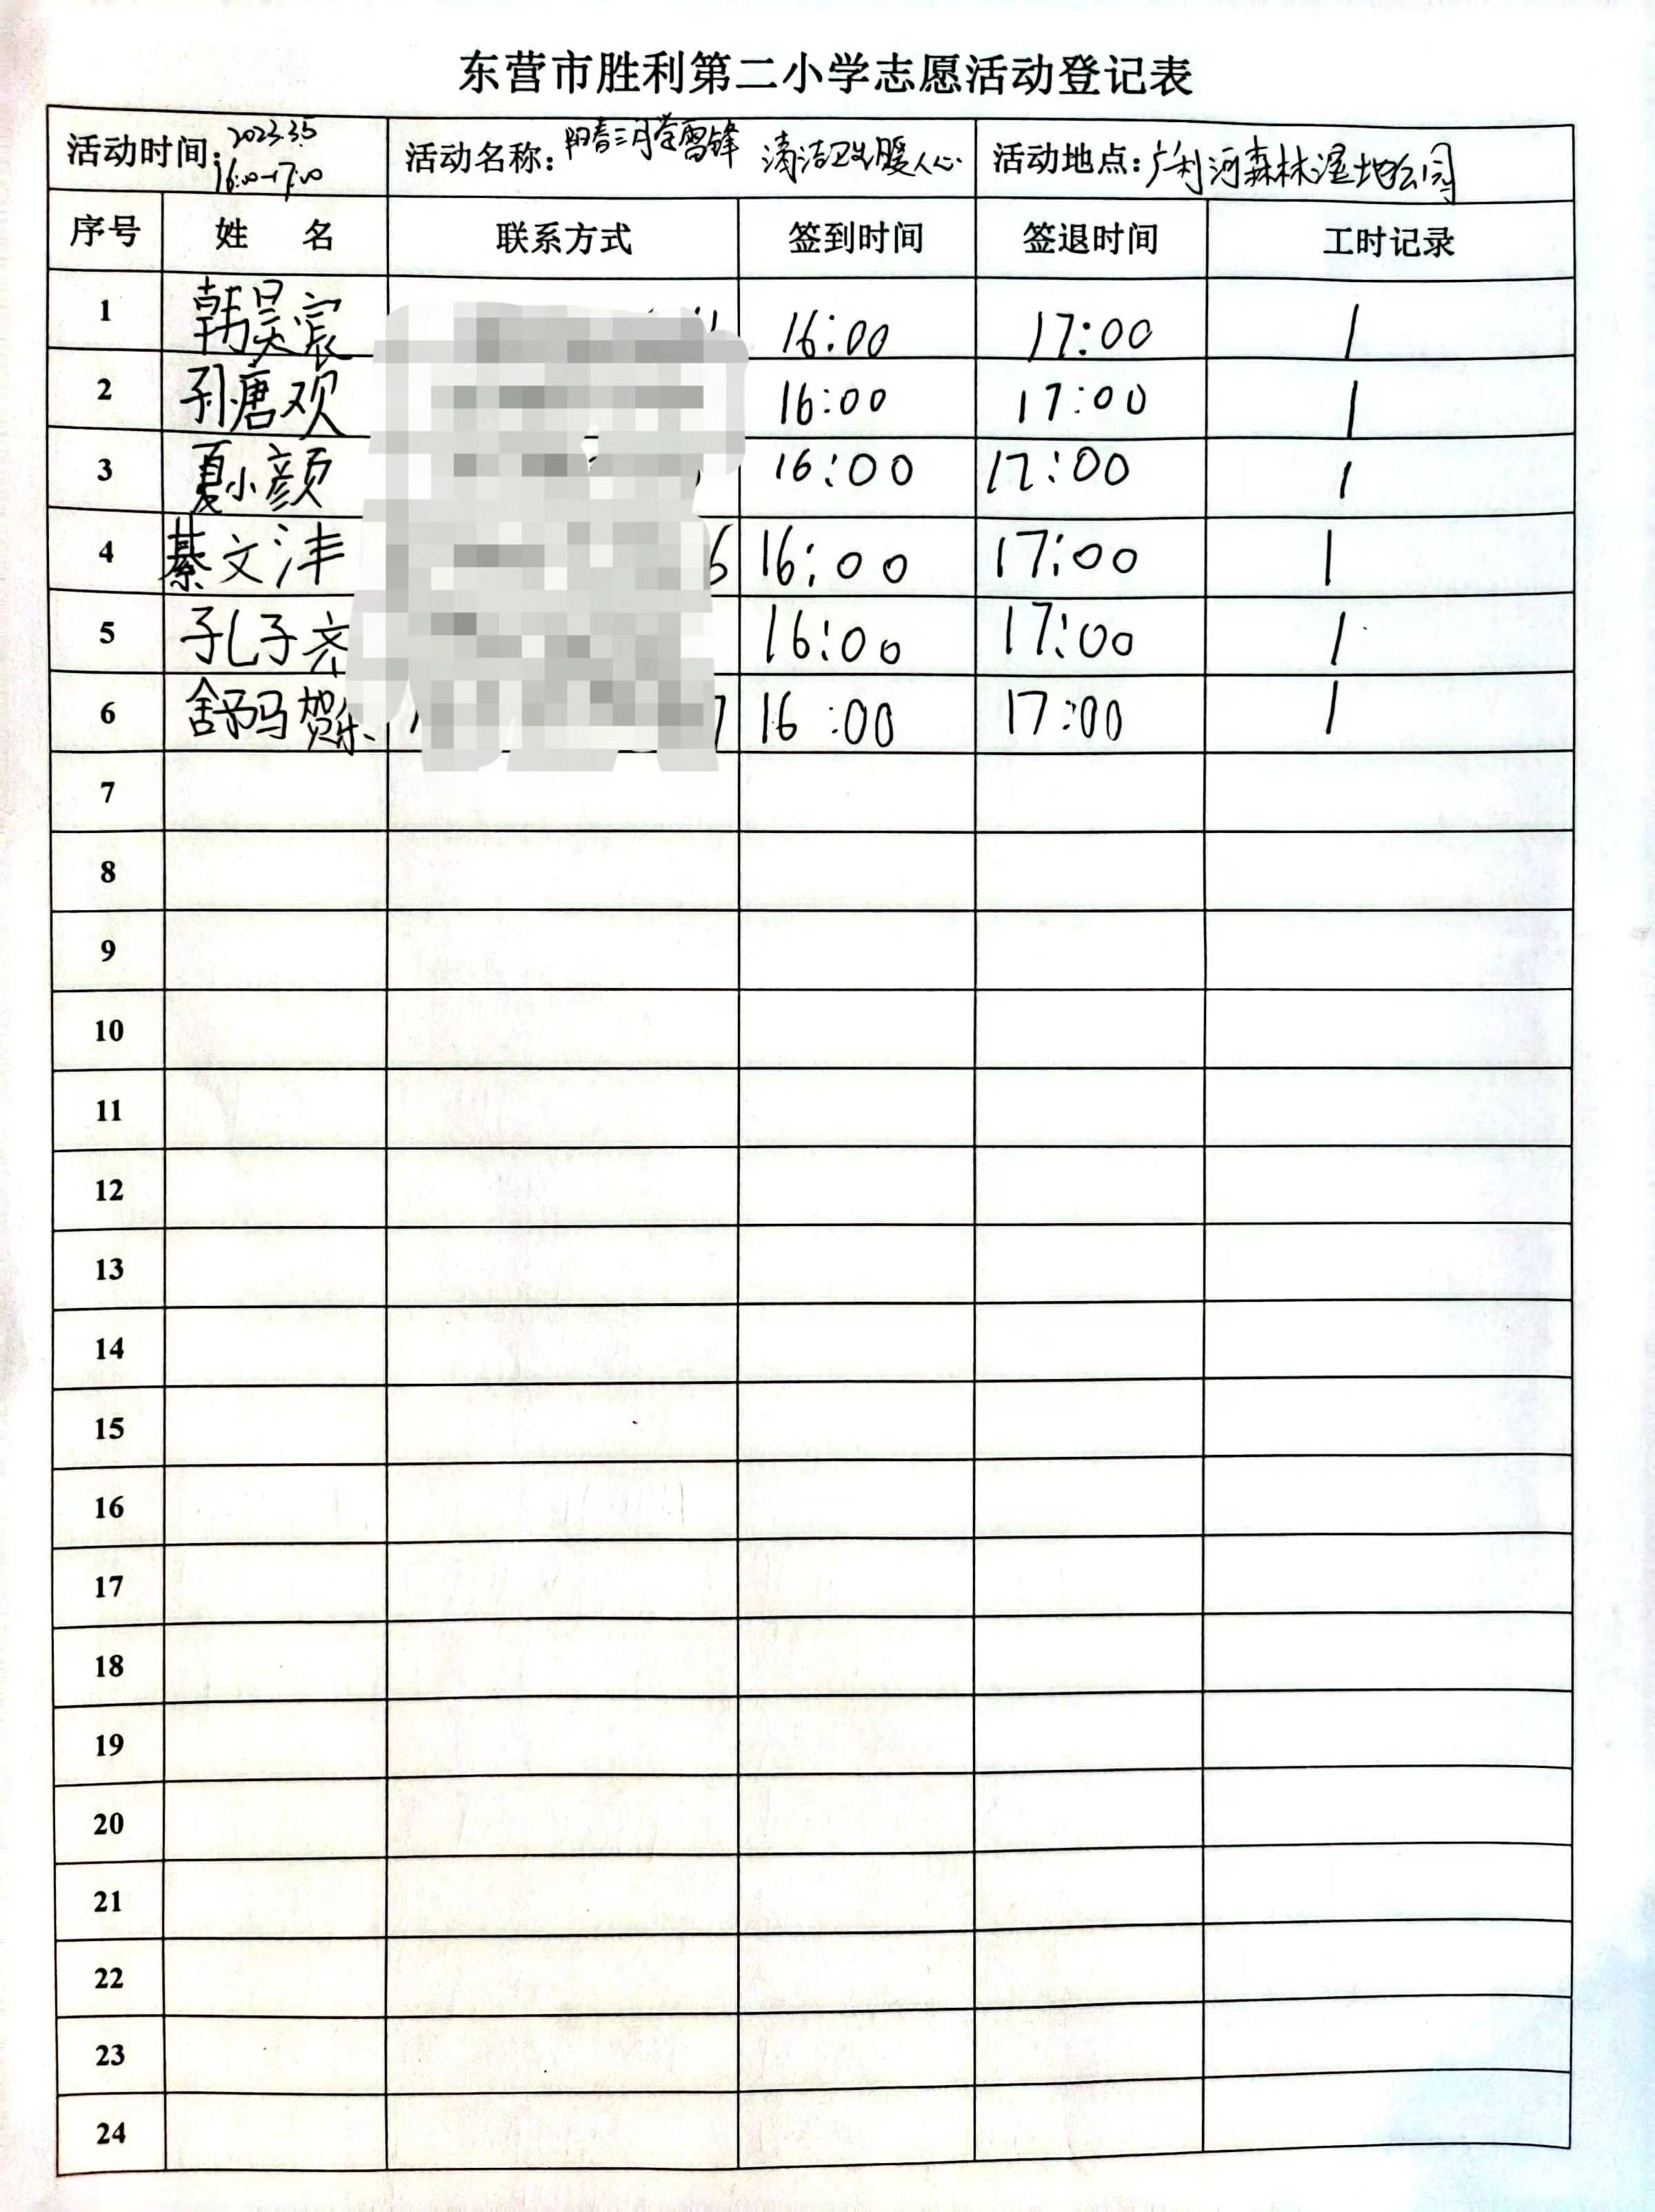 东营市胜利第二小学志愿活动登记表
活动时间: 2023.3.5 16:00-17:00 活动名称: 阳春三月学雷锋 清洁卫生暖人心 活动地点: 广利河森林湿地公园
序号 姓 名 联系方式 签到时间 签退时间 工时记录
1 韩昊宸 16:00 17:00 1
2 孙唐欢 16:00 17:00 1
3 夏小颜 16:00 17:00 1
4 綦文沣 16:00 17:00 1
5 孔子齐 16:00 17:00 1
6 舒马贺乐 16:00 17:00 1
7
8
9
10
11
12
13
14
15
16
17
18
19
20
21
22
23
24